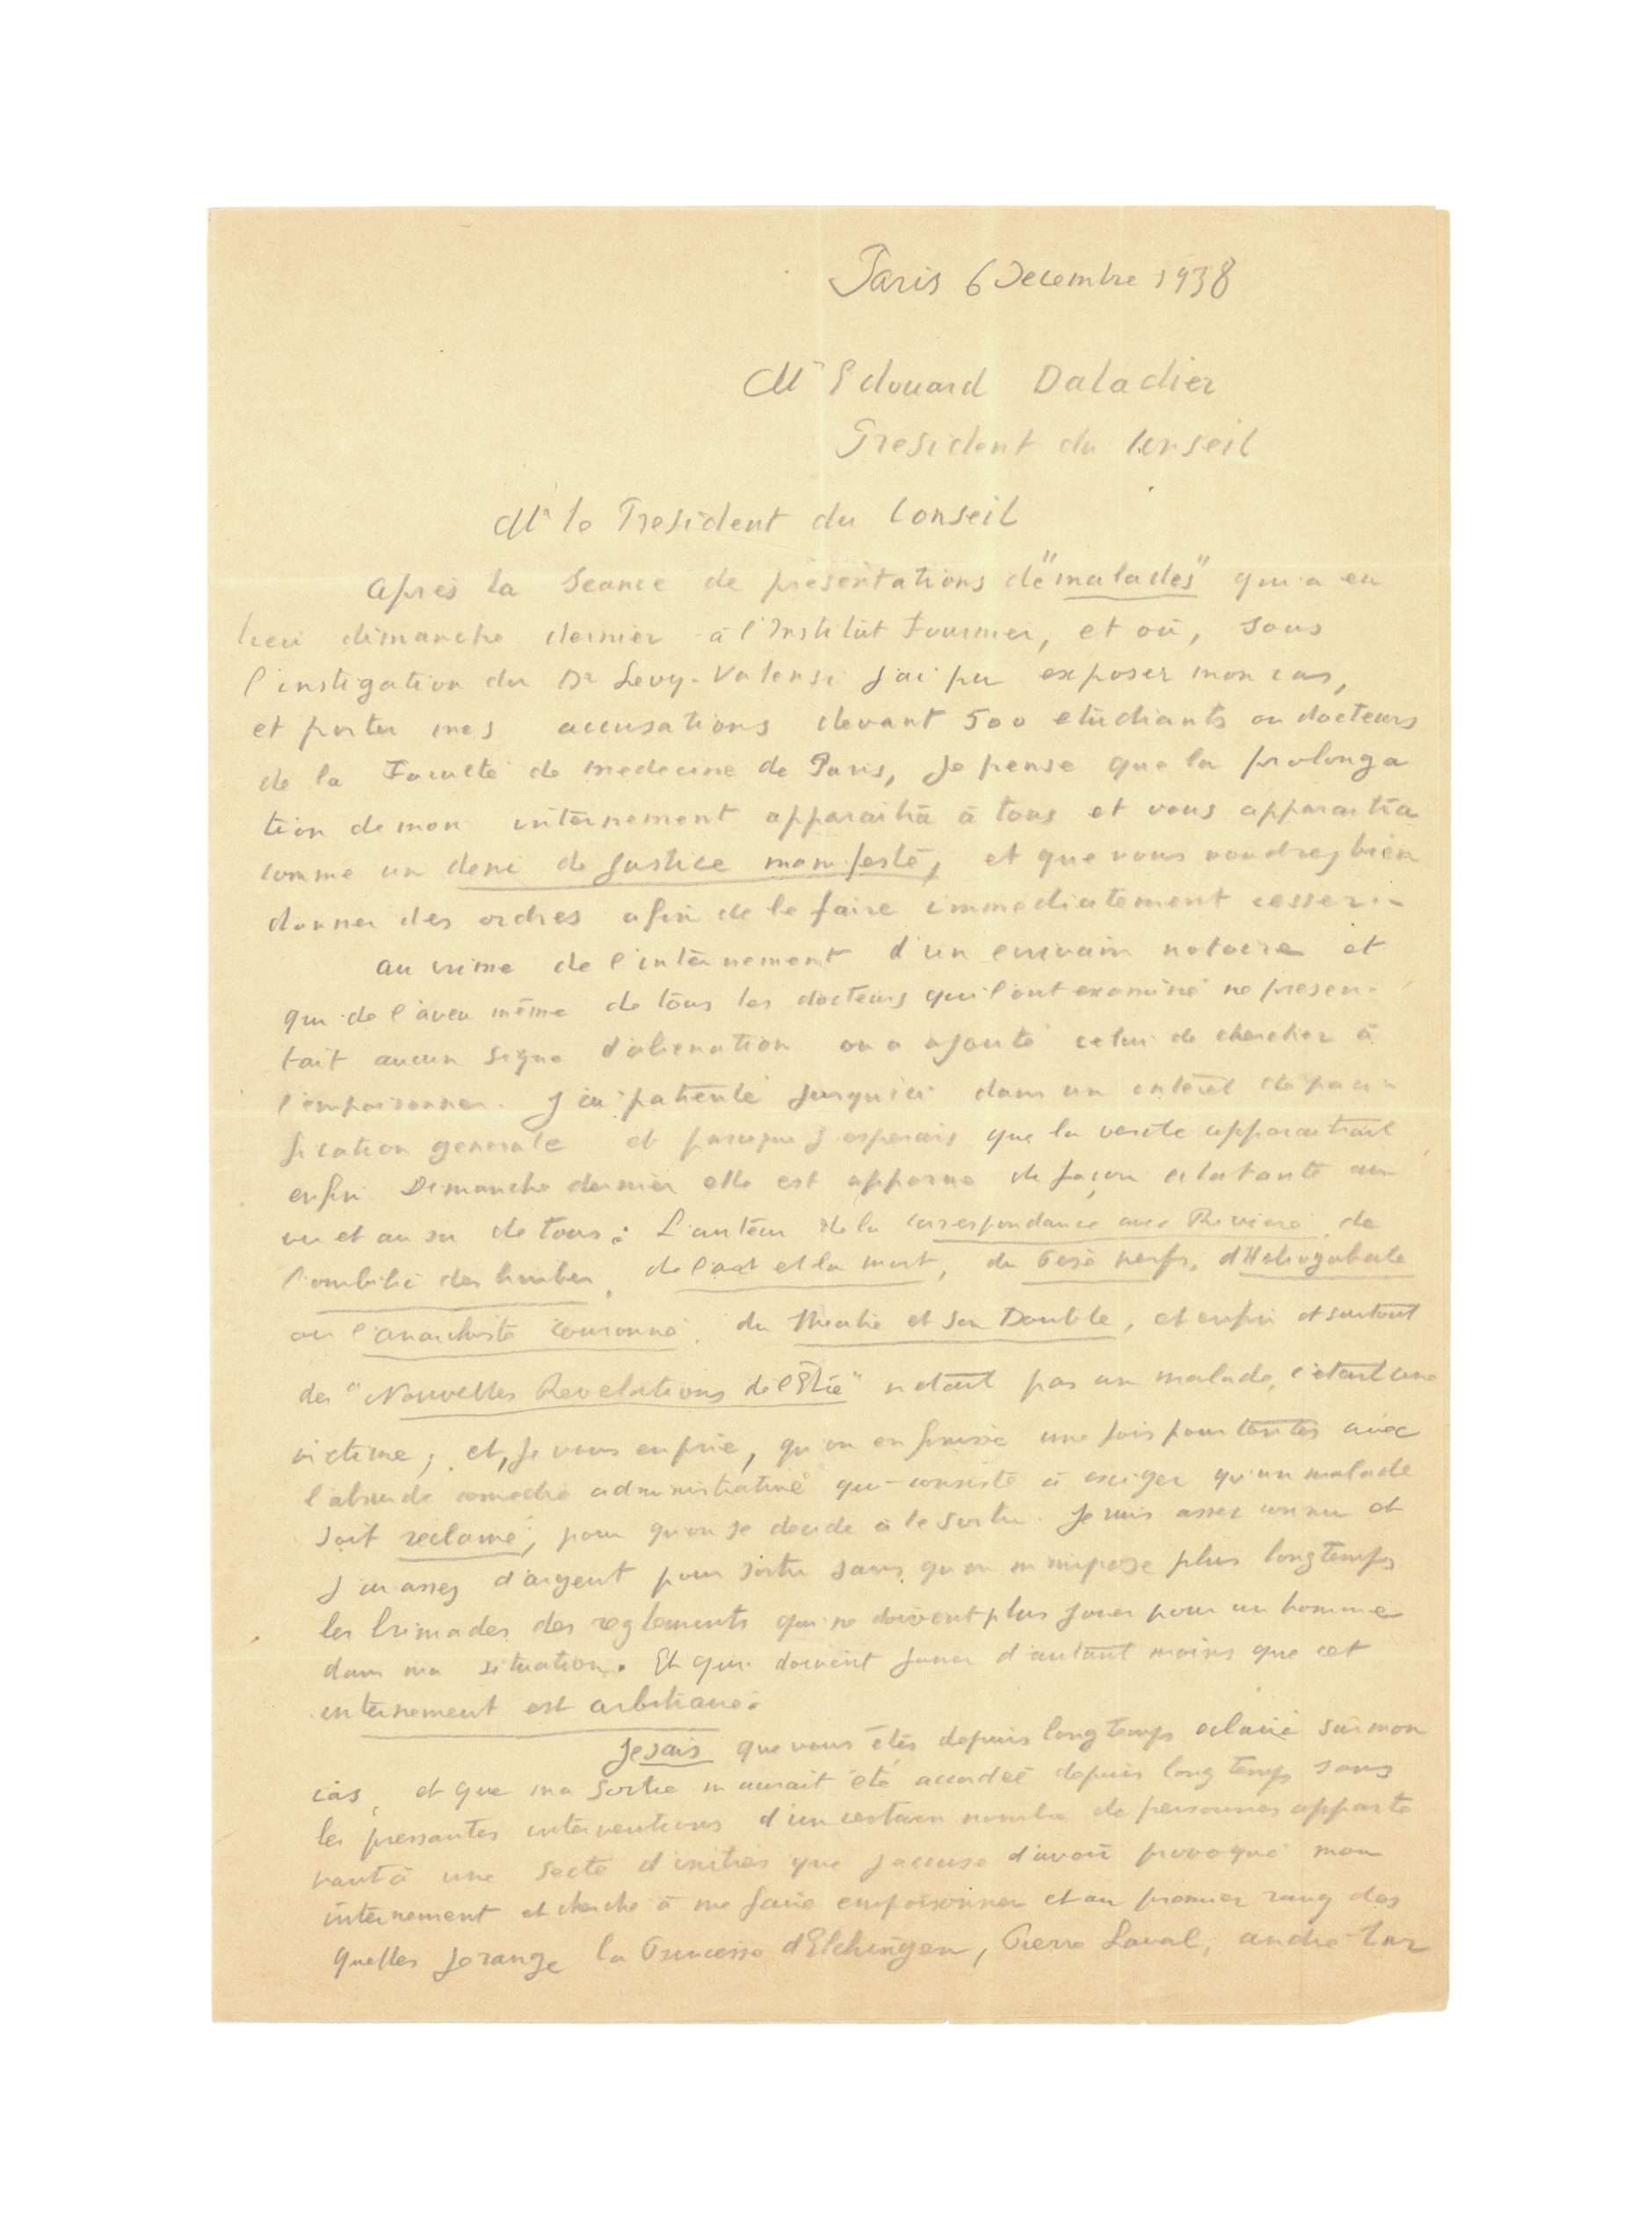 Paris 6 Decembre 1938
Mr Edouard Daladier
President du Conseil
Mr le President du Conseil
Après la Seance de présentations de "malades" qui a eu
lieu dimanche dernier à l'Institut Fournier, et où, sous
l'instigation du Dr Levy-Valensi j'ai pu exposer mon cas,
et porter mes accusations devant 500 etudiants ou docteurs
de la Faculté de medecine de Paris, je pense que la prolonga
tion de mon internement apparaitra à tous et vous apparaitra
comme un deni de Justice manifeste, et que vous voudrez bien
donner des ordres afin de le faire immediatement cesser.-
Au crime de l'internement d'un ecrivain notoire et
qui de l'aveu même de tous les docteurs qui l'ont examiné ne presen-
tait aucun signe d'alienation on a ajouté celui de chercher à
l'empoisonner. J'ai patienté jusqu'ici dans un intérêt de paci-
fication generale et parceque j'esperais que la verité apparaitrait
enfin. Dimanche dernier elle est apparue de façon eclatante au
vu et au su de tous: L'auteur de la correspondance avec Riviere, de
l'ombilic des limbes, de l'art et la mort, du Pese nerfs, d'Heliogabale
ou l'anarchiste couronné, du Theatre et son Double, et enfin et surtout
des "Nouvelles Revelations de l'Etre" n'etait pas un malade, c'etait une
victime; et, je vous en prie, qu'on en finisse une fois pour toutes avec
l'absurde comedie administrative qui consiste à exiger qu'un malade
soit reclamé, pour qu'on se decide à le sortir. Je suis assez connu et
j'ai assez d'argent pour sortir sans qu'on m'impose plus longtemps
les brimades des reglements qui ne doivent plus jouer pour un homme
dans ma situation. Et qui doivent jouer d'autant moins que cet
internement est arbitraire.
Je sais que vous êtes depuis longtemps eclairé sur mon
cas, et que ma sortie m'aurait été accordée depuis longtemps sans
les pressantes interventions d'un certain nombre de personnes apparte
nant à une secte d'initiés que j'accuse d'avoir provoqué mon
internement et cherché à me faire empoisonner et au premier rang des
quelles je range la Princesse d'Elchingen, Pierre Laval, andré